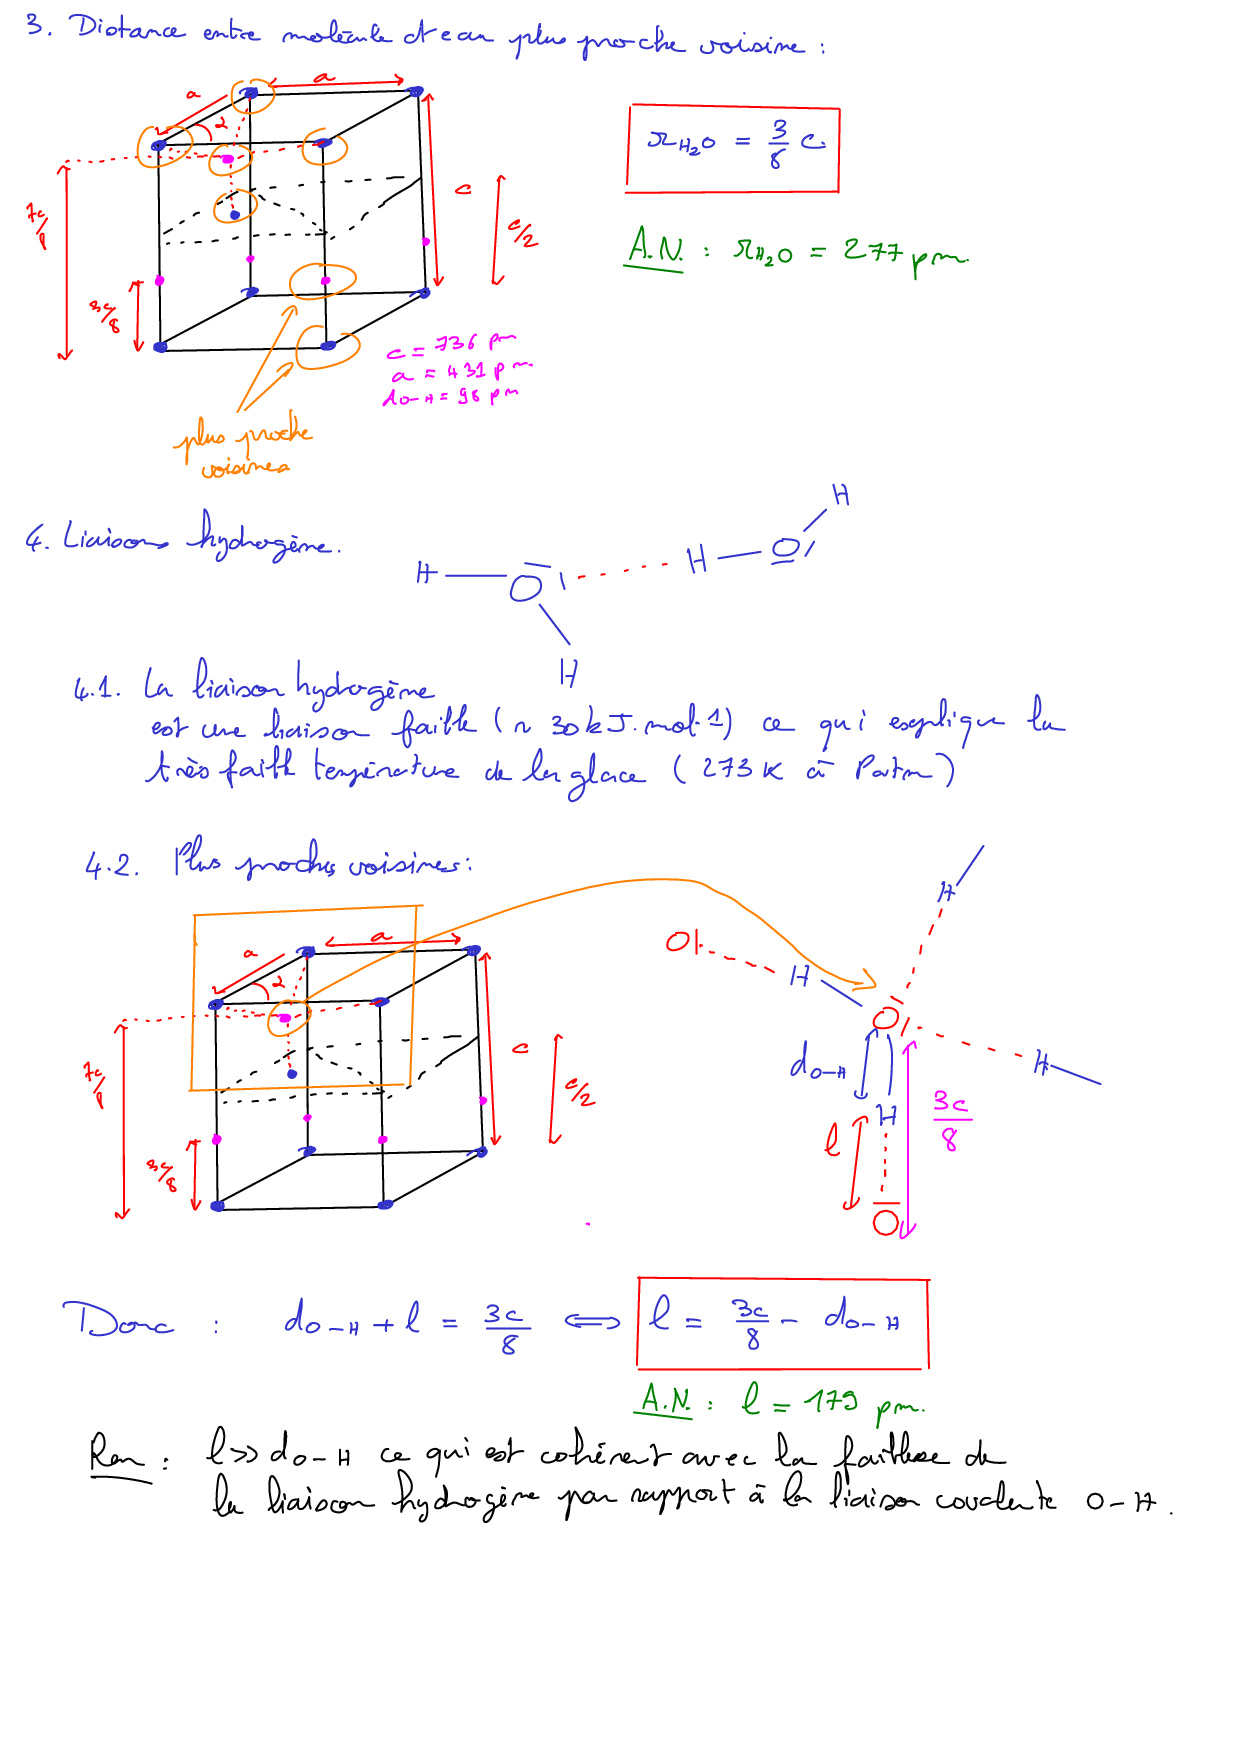 3. Distance entre molécule d'eau plus proche voisine :
a
a
α
7c/8
3c/8
c
c/2
r_{H_2O} = 3/8 c
A.N. : r_{H_2O} = 277 pm.
c = 736 pm
a = 431 pm
d_{O-H} = 98 pm
plus proche
voisines
4. Liaisons hydrogène.
H O H H O H
4.1. La liaison hydrogène
est une liaison faible (~ 30 kJ.mol-1) ce qui explique la
très faible température de la glace (273 K à Patm)
4.2. Plus proches voisines :
a
a
α
7c/8
3c/8
c
c/2
H
O
H
O
H
d_{O-H}
H
l
3c/8
O
Donc : d_{O-H} + l = 3c/8 ⟺ l = 3c/8 - d_{O-H}
A.N. : l = 179 pm.
Rem : l >> d_{O-H} ce qui est cohérent avec la faiblesse de
la liaison hydrogène par rapport à la liaison covalente O-H.